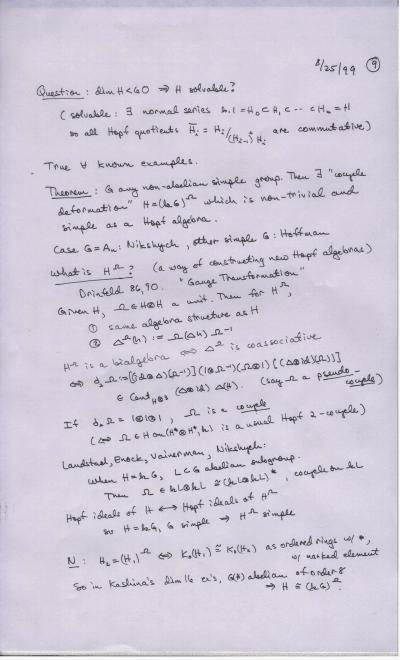 8/25/99 ⑨
Question : dim H < 60 ⇒ H solvable?
( solvable : ∃ normal series s.t. 1 = H₀ ⊂ H₁ ⊂ ··· ⊂ Hₙ = H
so all Hopf quotients H̄ᵢ = Hᵢ/(Hᵢ₋₁)⁺Hᵢ are commutative)
True ∀ known examples.
Theorem : G any non-abelian simple group. Then ∃ "cocycle
deformation" H = (kG)^Ω which is non-trivial and
simple as a Hopf algebra.
Case G = Aₙ : Nikshych, other simple G : Hoffman
What is H^Ω ? (a way of constructing new Hopf algebras)
Drinfeld 86, 90. "Gauge Transformation"
Given H, Ω ∈ H⊗H a unit. Then for H^Ω,
① same algebra structure as H
② Δ^Ω(h) := Ω(Δh)Ω⁻¹
H^Ω is a bialgebra ⇔ Δ^Ω is coassociative
⇔ ∂₂Ω := [(id⊗Δ)(Ω⁻¹)] (1⊗Ω⁻¹)(Ω⊗1) [(Δ⊗id)(Ω)]
∈ Cent_{H⊗3} (Δ⊗id) Δ(H). (say Ω a pseudo-
cocycle)
If ∂₂Ω = 1⊗1⊗1, Ω is a cocycle
( ⇔ Ω ∈ Hom(H*⊗H*, k) is a usual Hopf 2-cocycle)
Landstad, Enock, Vainerman, Nikshych:
When H = kG, L ⊂ G abelian subgroup.
Then Ω ∈ kL⊗kL ≅ (kL̂⊗kL̂)*, cocycle on kL̂
Hopf ideals of H ↔ Hopf ideals of H^Ω
so H = kG, G simple ⇒ H^Ω simple
N : H₂ = (H₁)^Ω ⇔ K₀(H₁) ≅ K₀(H₂) as ordered rings w/ *,
w/ marked element
So in Kashina's dim 16 ex's, G(H) abelian of order 8
⇒ H ≅ (kG)^Ω.